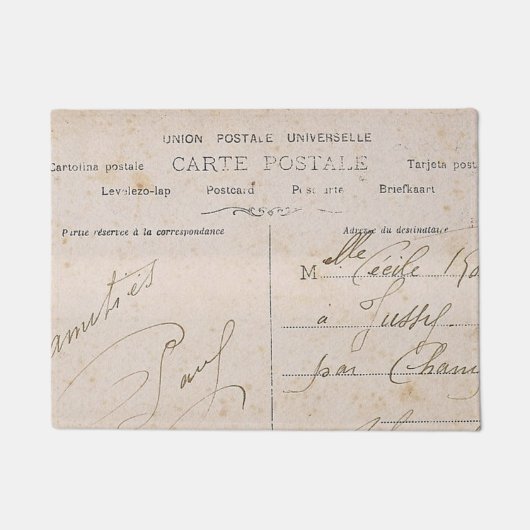 UNION POSTALE UNIVERSELLE
Cartolina postale CARTE POSTALE Tarjeta post
Levelezo-lap Postcard Postkarte Briefkaart
Partie réservée à la correspondance
Adresse du destinataire
amitiés
Paul
M lle Cécile
à Jussy
par Cham